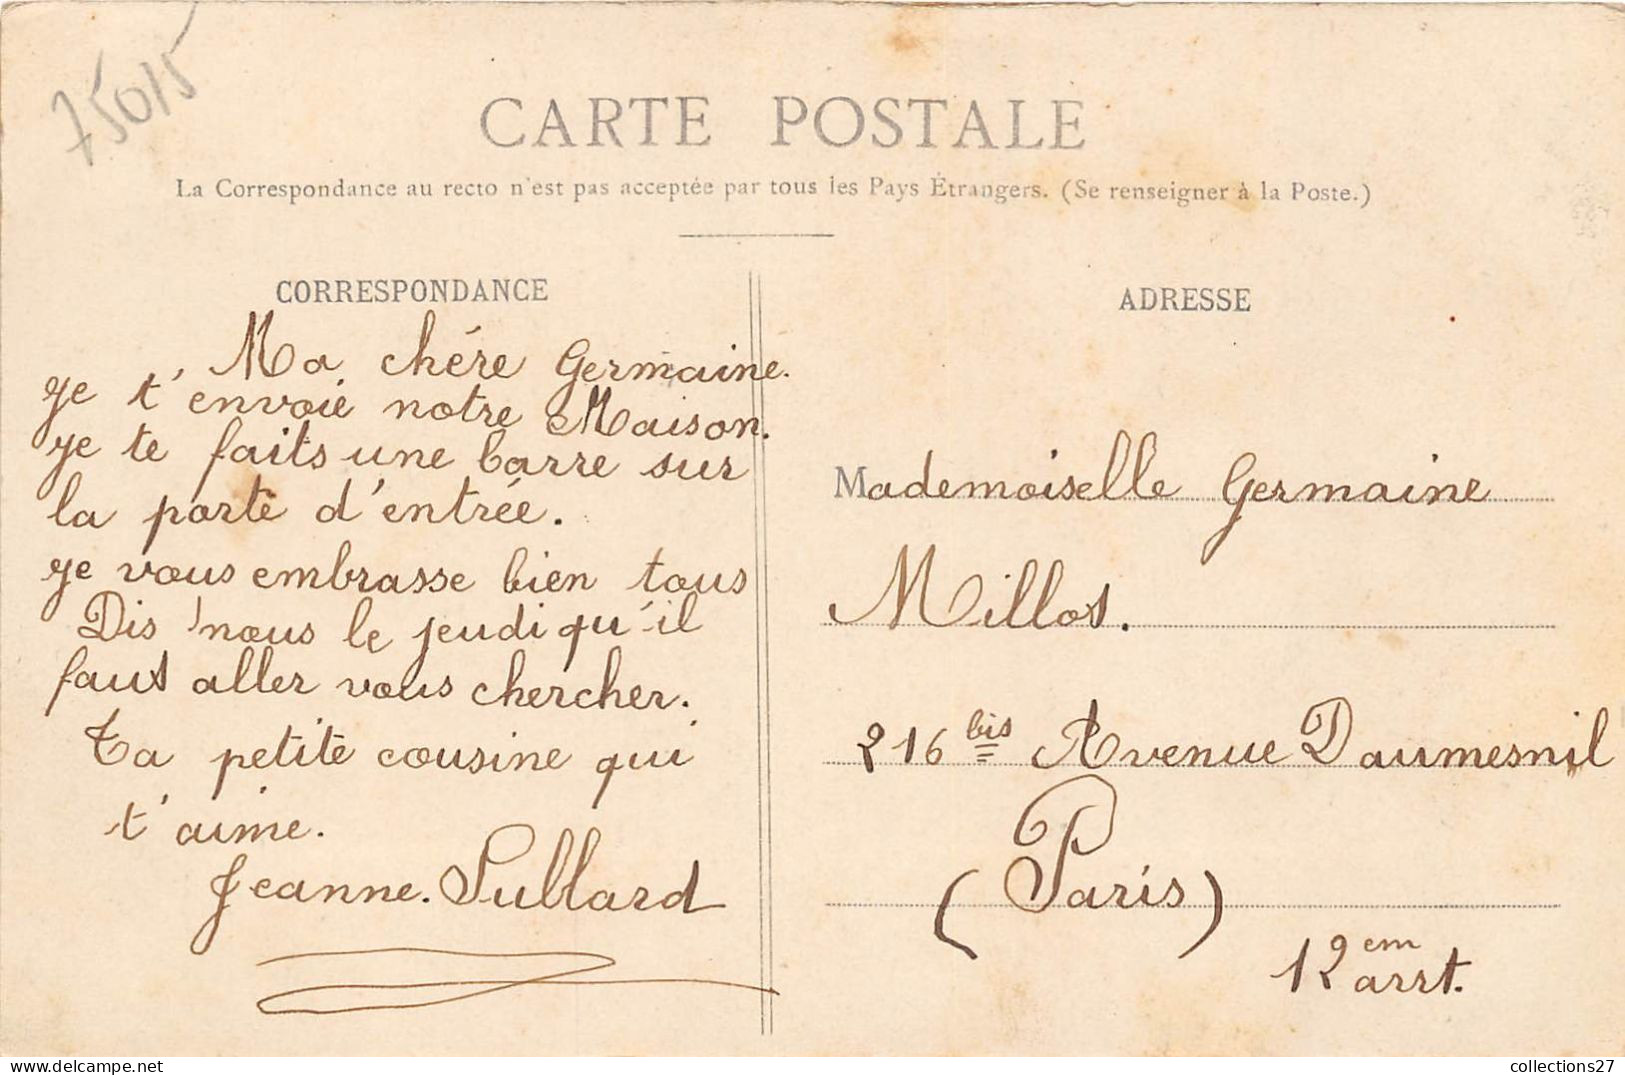 75015
CARTE POSTALE
La Correspondance au recto n'est pas acceptée par tous les Pays Étrangers. (Se renseigner à la Poste.)
CORRESPONDANCE
Ma chére Germaine.
je t'envoie notre Maison.
je te faits une barre sur
la porte d'entrée.
je vous embrasse bien tous
Dis nous le jeudi qu'il
faut aller vous chercher.
Ta petite cousine qui
t'aime.
Jeanne. Pullard
ADRESSE
Mademoiselle Germaine
Millot.
216 bis Avenue Daumesnil
(Paris)
12em arrt.
collections27